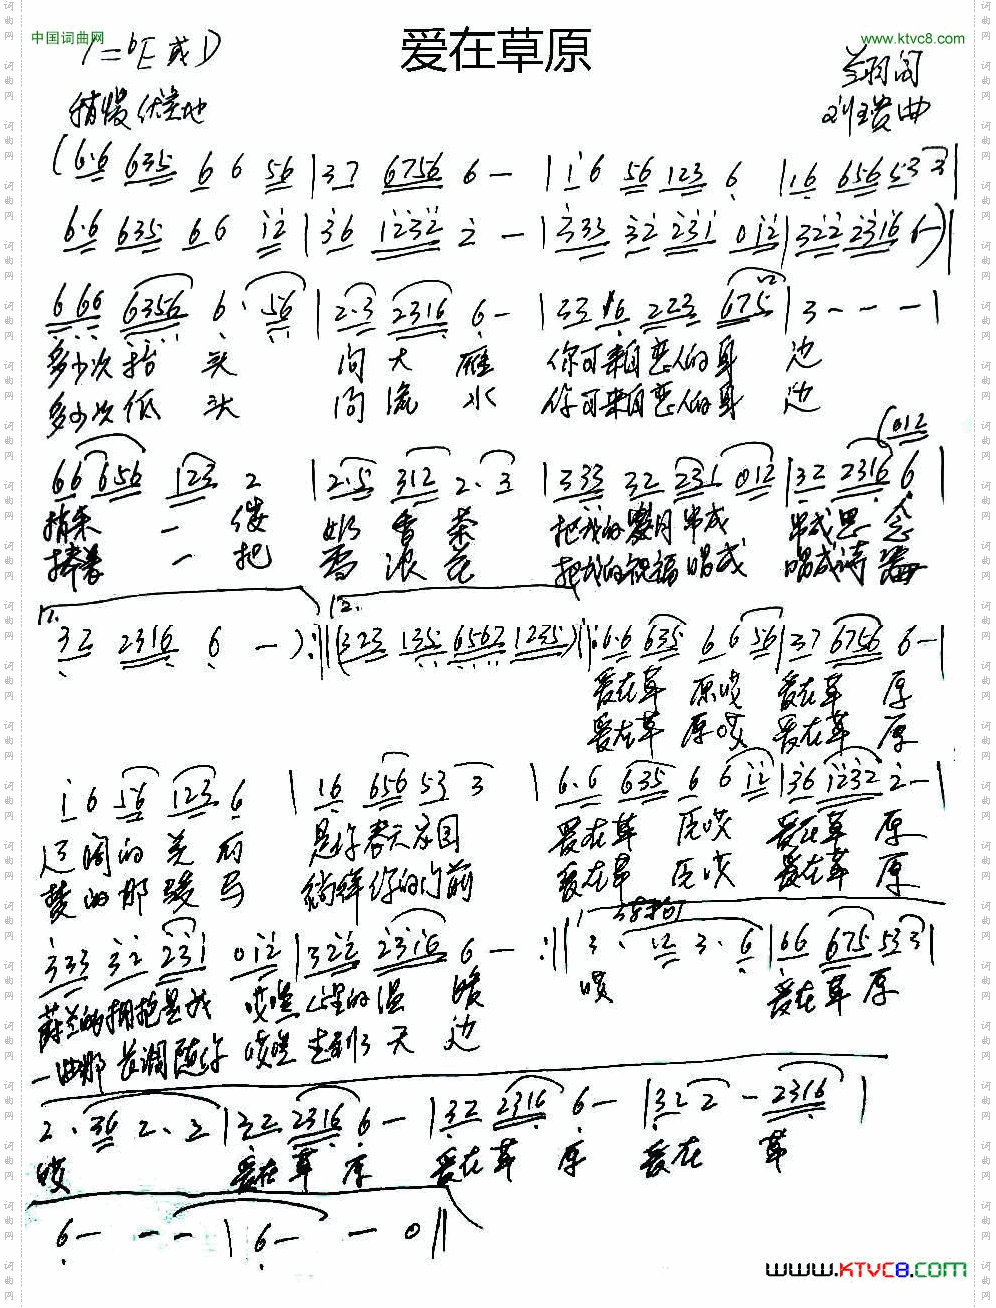 爱在草原
中国词曲网
www.ktvc8.com
1=bE 或 D
稍慢
曲
(6·6 635 6 6 56 | 37 6756 6 — | i 6 56 123 6 | 16 656 53 3 |
6·6 635 6 6 12 | 36 1232 2 — | 333 32 231 012 | 322 2316 6 — )|
6 66 6356 6· 56 | 2·3 2316 6 — | 33 6 223 675 | 3 - - - |
多少次抬 头 问 大 雁 你可来自恋人的身 边
多少次低 头 问 流 水 你可来自恋人的身 边
(012
66 656 123 2 | 2·5 312 2·3 | 333 32 231 012 | 32 2316 6 |
捎来 一 奶 香 茶 把我的 月 串成 串成思 念
捧着 一 把 雪 浪 花 把我的祝福 唱成 唱成诗 篇
1. 2.
32 2316 6 — ) :|| (323 135 6567 1235) ||: 6·6 635 6 6 56 | 37 6756 6 — |
爱在草 原哎 爱在草 原
爱在草 原哎 爱在草 原
i 6 56 123 6 | 16 656 53 3 | 6·6 635 6 6 12 | 36 1232 2 — |
辽阔的 是你春天 园 爱在草 原哎 爱在草 原
梦的那 骏 马 徜徉你的门前 爱在草 原哎 爱在草 原
333 32 231 012 | 322 2316 6 — :|| 3· 12 3· 6 | 66 675 533 |
蔚兰的拥抱是我 哎嘿 的温 暖 哎 爱在草 原
一曲那 长调随你 哎嘿 走到了 天 边
2· 36 2· 2 | 22 2316 6 — | 32 2316 6 — | 32 2 — 2316 |
哎 爱在 草 原 爱在草 原 爱在 草
6 — — — | 6 — — 0 ||
www.KTVC8.com